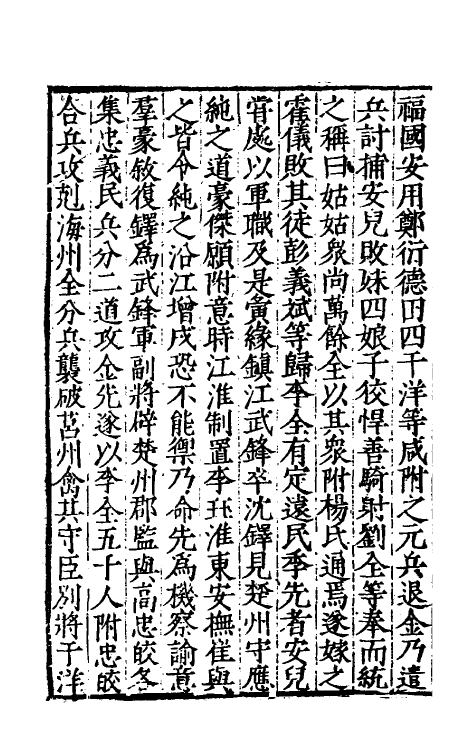 福國安用鄭衍德田四于洋等咸附之元兵退金乃遣
兵討捕安兒敗妹四娘子狡悍善騎射劉全等奉而統
之稱曰姑姑衆尚萬餘全以其衆附楊氏通焉遂嫁之
霍儀敗其徒彭義斌等歸李全有定遠民季先者安兒
嘗處以軍職及是夤緣鎮江武鋒卒沈鐸見楚州守應
純之道豪傑願附意時江淮制置李玨淮東安撫崔與
之皆令純之沿江增戍恐不能禦乃命先爲機察諭意
羣豪敘復鐸爲武鋒軍副將辟楚州郡監與高忠皎各
集忠義民兵分二道攻金先遂以李全五千人附忠皎
合兵攻剋海州全分兵襲破莒州禽其守臣別將于洋